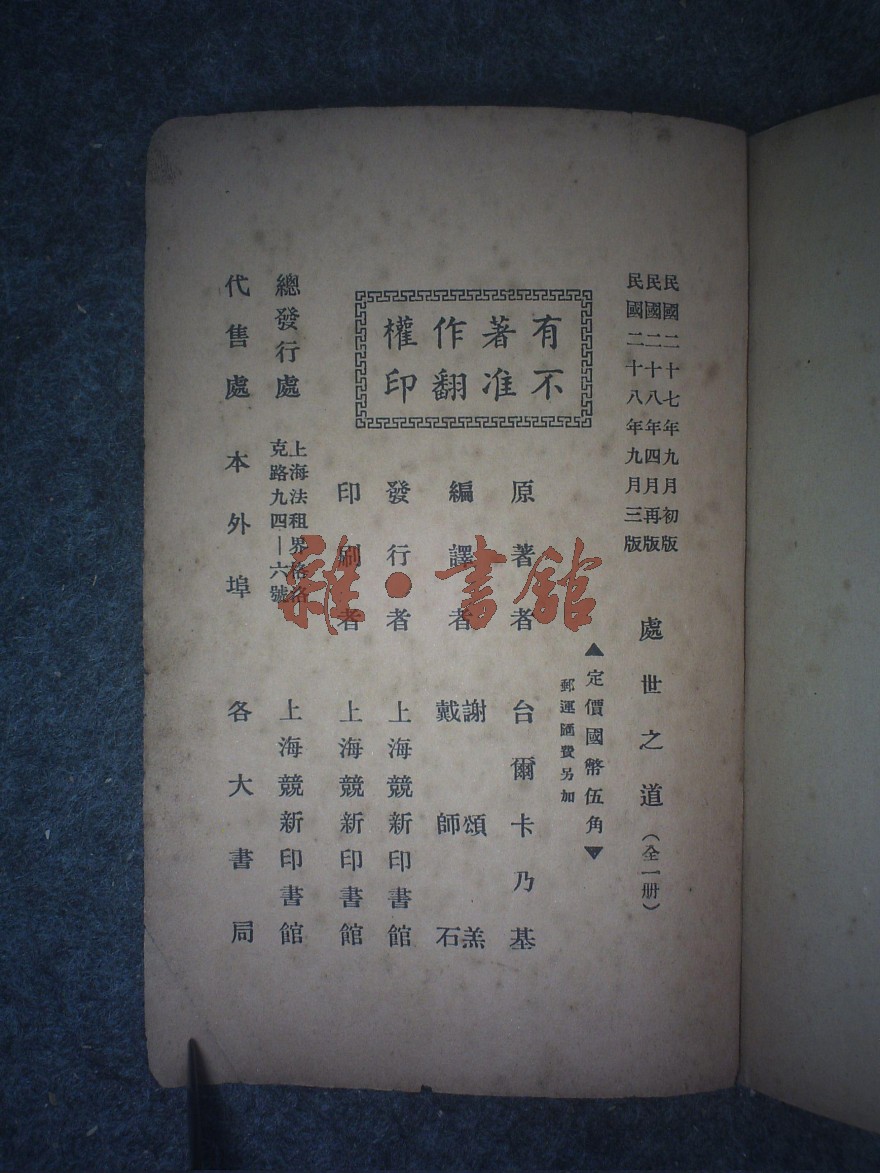 民國二十七年九月初版
民國二十八年四月再版
民國二十八年九月三版
處世之道（全一册）
▲定價國幣伍角▼
郵運匯費另加
有著作權
不准翻印
原著者 台爾卡乃基
編譯者 謝頌羔
戴師石
發行者 上海競新印書館
印刷者 上海競新印書館
總發行處 上海法租界格洛
克路九四—六號
上海競新印書館
代售處 本外埠各大書局
雜·書館